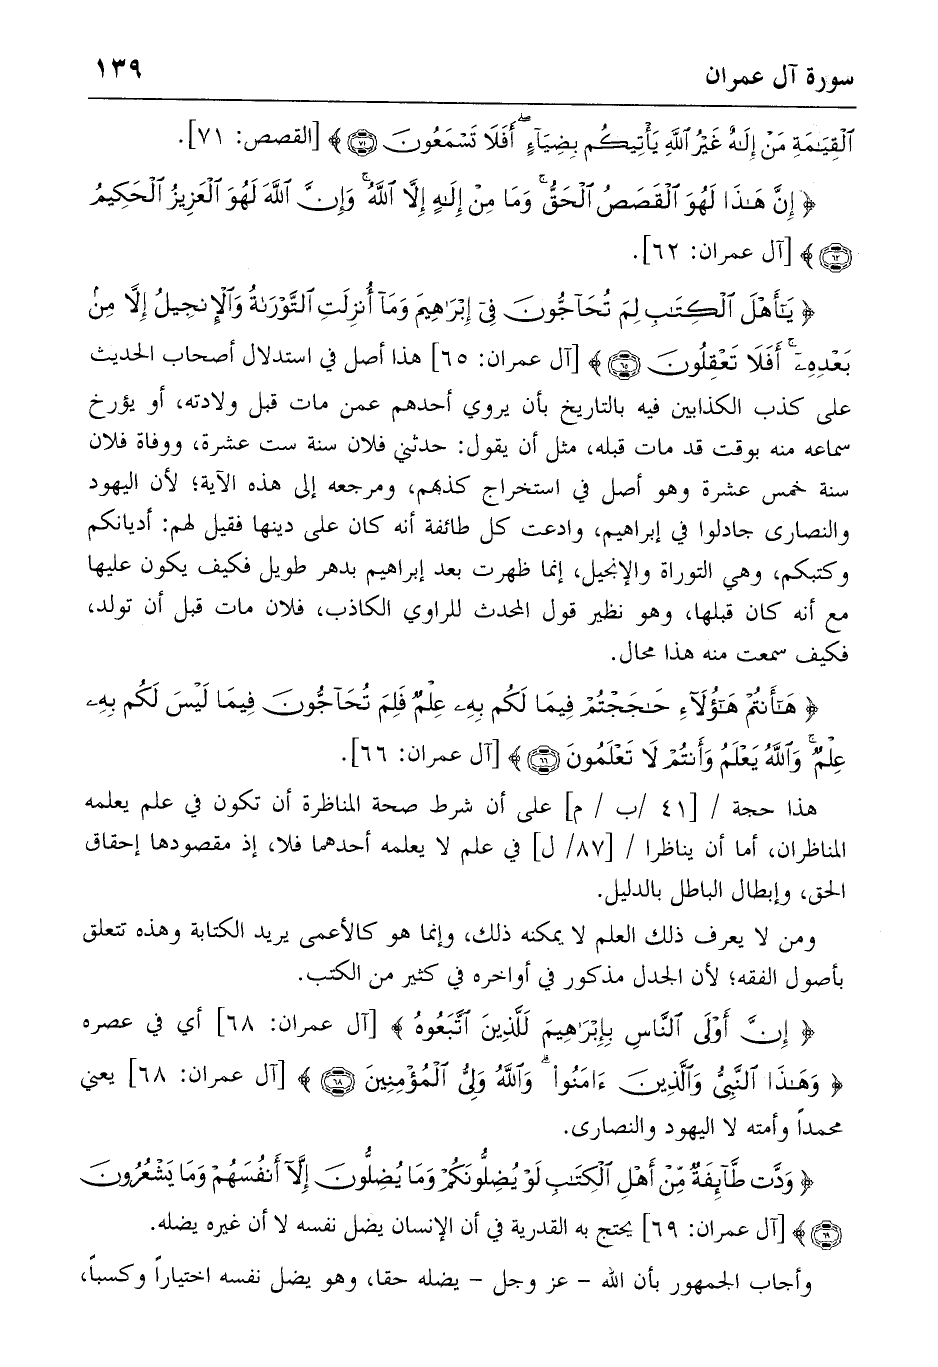 سورة آل عمران ١٣٩
ٱلْقِيَٰمَةِ مَنْ إِلَٰهٌ غَيْرُ ٱللَّهِ يَأْتِيكُم بِضِيَآءٍ ۖ أَفَلَا تَسْمَعُونَ ﴿٧١﴾ ﴾ [القصص: ٧١].
﴿ إِنَّ هَٰذَا لَهُوَ ٱلْقَصَصُ ٱلْحَقُّ ۚ وَمَا مِنْ إِلَٰهٍ إِلَّا ٱللَّهُ ۚ وَإِنَّ ٱللَّهَ لَهُوَ ٱلْعَزِيزُ ٱلْحَكِيمُ
﴿٦٢﴾ ﴾ [آل عمران: ٦٢].
﴿ يَٰٓأَهْلَ ٱلْكِتَٰبِ لِمَ تُحَآجُّونَ فِىٓ إِبْرَٰهِيمَ وَمَآ أُنزِلَتِ ٱلتَّوْرَىٰةُ وَٱلْإِنجِيلُ إِلَّا مِنۢ
بَعْدِهِۦٓ ۚ أَفَلَا تَعْقِلُونَ ﴿٦٥﴾ ﴾ [آل عمران: ٦٥] هذا أصل في استدلال أصحاب الحديث
على كذب الكذابين فيه بالتاريخ بأن يروي أحدهم عمن مات قبل ولادته، أو يؤرخ
سماعه منه بوقت قد مات قبله، مثل أن يقول: حدثني فلان سنة ست عشرة، ووفاة فلان
سنة خمس عشرة وهو أصل في استخراج كذبهم، ومرجعه إلى هذه الآية؛ لأن اليهود
والنصارى جادلوا في إبراهيم، وادعت كل طائفة أنه كان على دينها فقيل لهم: أديانكم
وكتبكم، وهي التوراة والإنجيل، إنما ظهرت بعد إبراهيم بدهر طويل فكيف يكون عليها
مع أنه كان قبلها، وهو نظير قول المحدث للراوي الكاذب، فلان مات قبل أن تولد،
فكيف سمعت منه هذا محال.
﴿ هَٰٓأَنتُمْ هَٰٓؤُلَآءِ حَٰجَجْتُمْ فِيمَا لَكُم بِهِۦ عِلْمٌ فَلِمَ تُحَآجُّونَ فِيمَا لَيْسَ لَكُم بِهِۦ
عِلْمٌ ۚ وَٱللَّهُ يَعْلَمُ وَأَنتُمْ لَا تَعْلَمُونَ ﴿٦٦﴾ ﴾ [آل عمران: ٦٦].
هذا حجة / [٤١ /ب / م] على أن شرط صحة المناظرة أن تكون في علم يعلمه
المناظران، أما أن يناظرا / [٨٧/ ل] في علم لا يعلمه أحدهما فلا، إذ مقصودها إحقاق
الحق، وإبطال الباطل بالدليل.
ومن لا يعرف ذلك العلم لا يمكنه ذلك، وإنما هو كالأعمى يريد الكتابة وهذه تتعلق
بأصول الفقه؛ لأن الجدل مذكور في أواخره في كثير من الكتب.
﴿ إِنَّ أَوْلَى ٱلنَّاسِ بِإِبْرَٰهِيمَ لَلَّذِينَ ٱتَّبَعُوهُ ﴾ [آل عمران: ٦٨] أي في عصره
﴿ وَهَٰذَا ٱلنَّبِىُّ وَٱلَّذِينَ ءَامَنُوا۟ ۗ وَٱللَّهُ وَلِىُّ ٱلْمُؤْمِنِينَ ﴿٦٨﴾ ﴾ [آل عمران: ٦٨] يعني
محمداً وأمته لا اليهود والنصارى.
﴿ وَدَّت طَّآئِفَةٌ مِّنْ أَهْلِ ٱلْكِتَٰبِ لَوْ يُضِلُّونَكُمْ وَمَا يُضِلُّونَ إِلَّآ أَنفُسَهُمْ وَمَا يَشْعُرُونَ
﴿٦٩﴾ ﴾ [آل عمران: ٦٩] يحتج به القدرية في أن الإنسان يضل نفسه لا أن غيره يضله.
وأجاب الجمهور بأن الله – عز وجل – يضله حقا، وهو يضل نفسه اختياراً وكسباً،